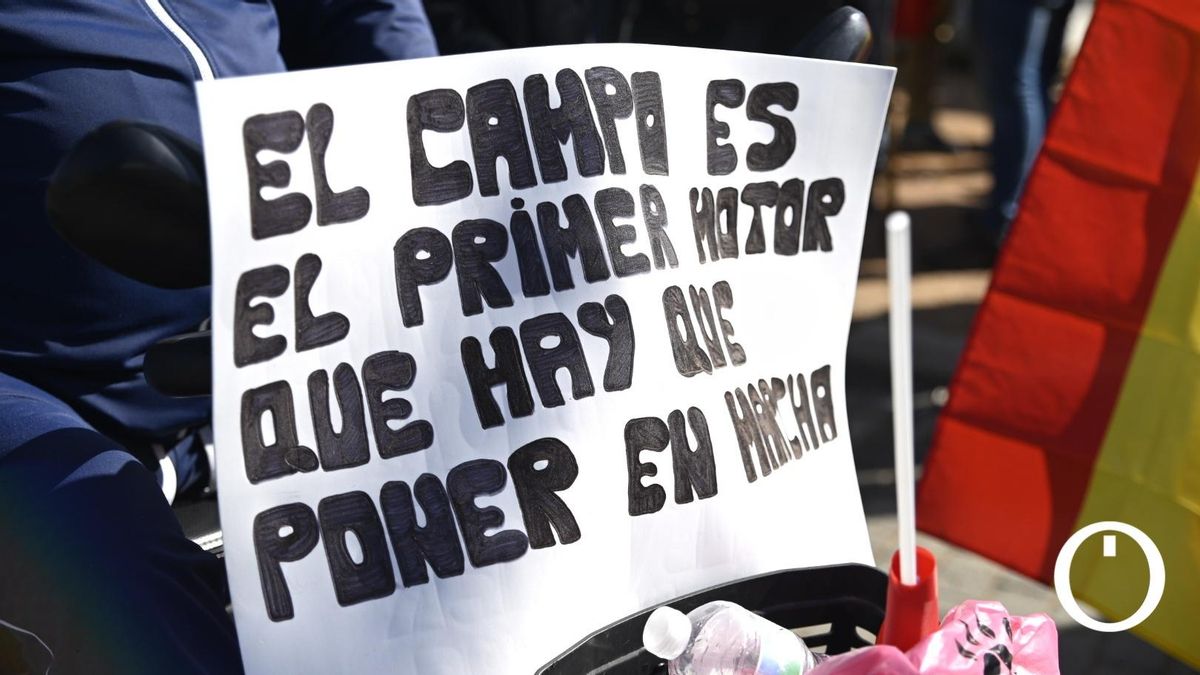 EL CAMPO ES
EL PRIMER MOTOR
QUE HAY QUE
PONER EN MARCHA